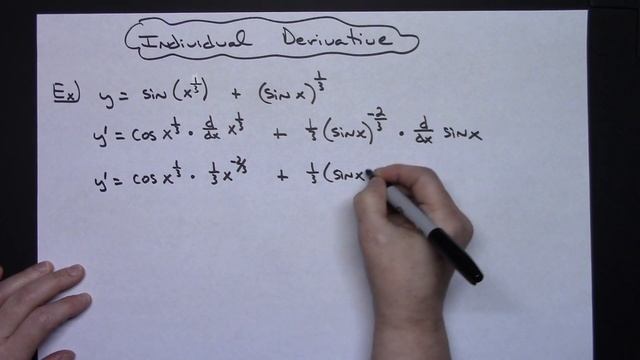 Individual Derivative
Ex) y = sin(x^{1/3}) + (sin x)^{1/3}
y' = cos x^{1/3} · d/dx x^{1/3} + 1/3 (sinx)^{-2/3} · d/dx sinx
y' = cos x^{1/3} · 1/3 x^{-2/3} + 1/3 (sinx